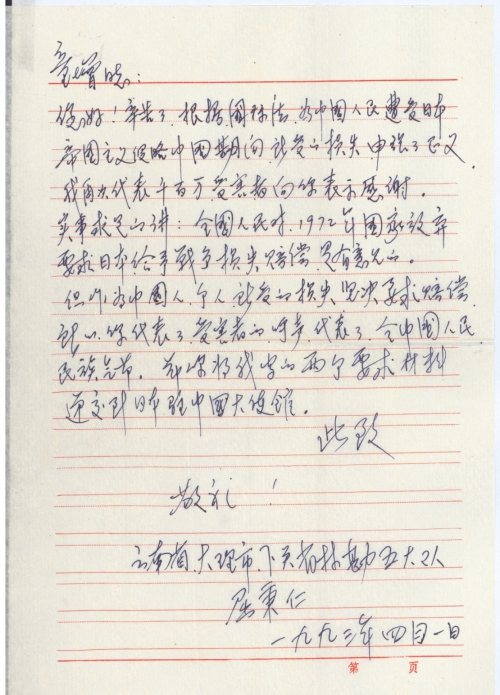 童增同志：
您好！辛苦了，根据国际法，为中国人民遭受日本
帝国主义侵略中国期间所受的损失，申张了正义
我再次代表千百万受害者向你表示感谢。
实事求是的讲：全国人民对1972年国家放弃
要求日本给予战争损失赔偿，是有意见的。
但作为中国人，个人所受的损失坚决要求赔偿
所以，你代表了受害者的呼声，代表了全中国人民
民族气节。我将我写的两个要求材料
递交到日本驻中国大使馆。
此致
敬礼！
云南省大理市下关省林勘五大队
屈秉仁
一九九三年四月一日
第 页